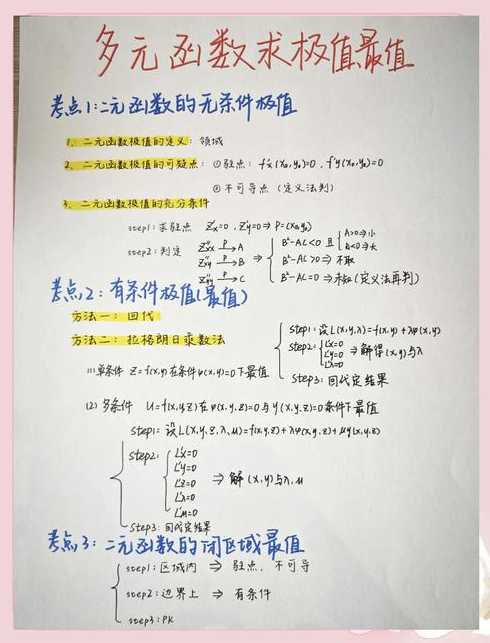 多元函数求极值最值
考点1:二元函数的无条件极值
1、二元函数极值的定义：领域
2、二元函数极值的可疑点：①驻点：f'x(x₀,y₀)=0，f'y(x₀,y₀)=0
②不可导点（定义法判）
3、二元函数极值的充分条件
step1:求驻点 Z'x=0，Z'y=0⇒P=(x₀,y₀)
step2:判定
Z''xx P→A
Z''xy P→B
Z''yy P→C
⇒ B²-AC<0 且 A>0⇒小
⇒大
B²-AC>0⇒不取
B²-AC=0⇒未知(定义法再判)
考点2:有条件极值(最值)
方法一：回代
方法二：拉格朗日乘数法
(1)单条件 Z=f(x,y)在条件φ(x,y)=0下最值
step1:设L(x,y,λ)=f(x,y)+λφ(x,y)
step2: L'x=0
L'y=0 ⇒解得(x,y)与λ
L'λ=0
step3:回代定结果
(2)多条件 u=f(x,y,z)在φ(x,y,z)=0与ψ(x,y,z)=0条件下最值
step1:设L(x,y,z,λ,μ)=f(x,y,z)+λφ(x,y,z)+μψ(x,y,z)
step2: L'x=0
L'y=0
L'z=0 ⇒解(x,y)与λ,μ
L'λ=0
L'μ=0
step3:回代定结果
考点3:二元函数的闭区域最值
step1:区域内⇒驻点、不可导
step2:边界上⇒有条件
step3:PK